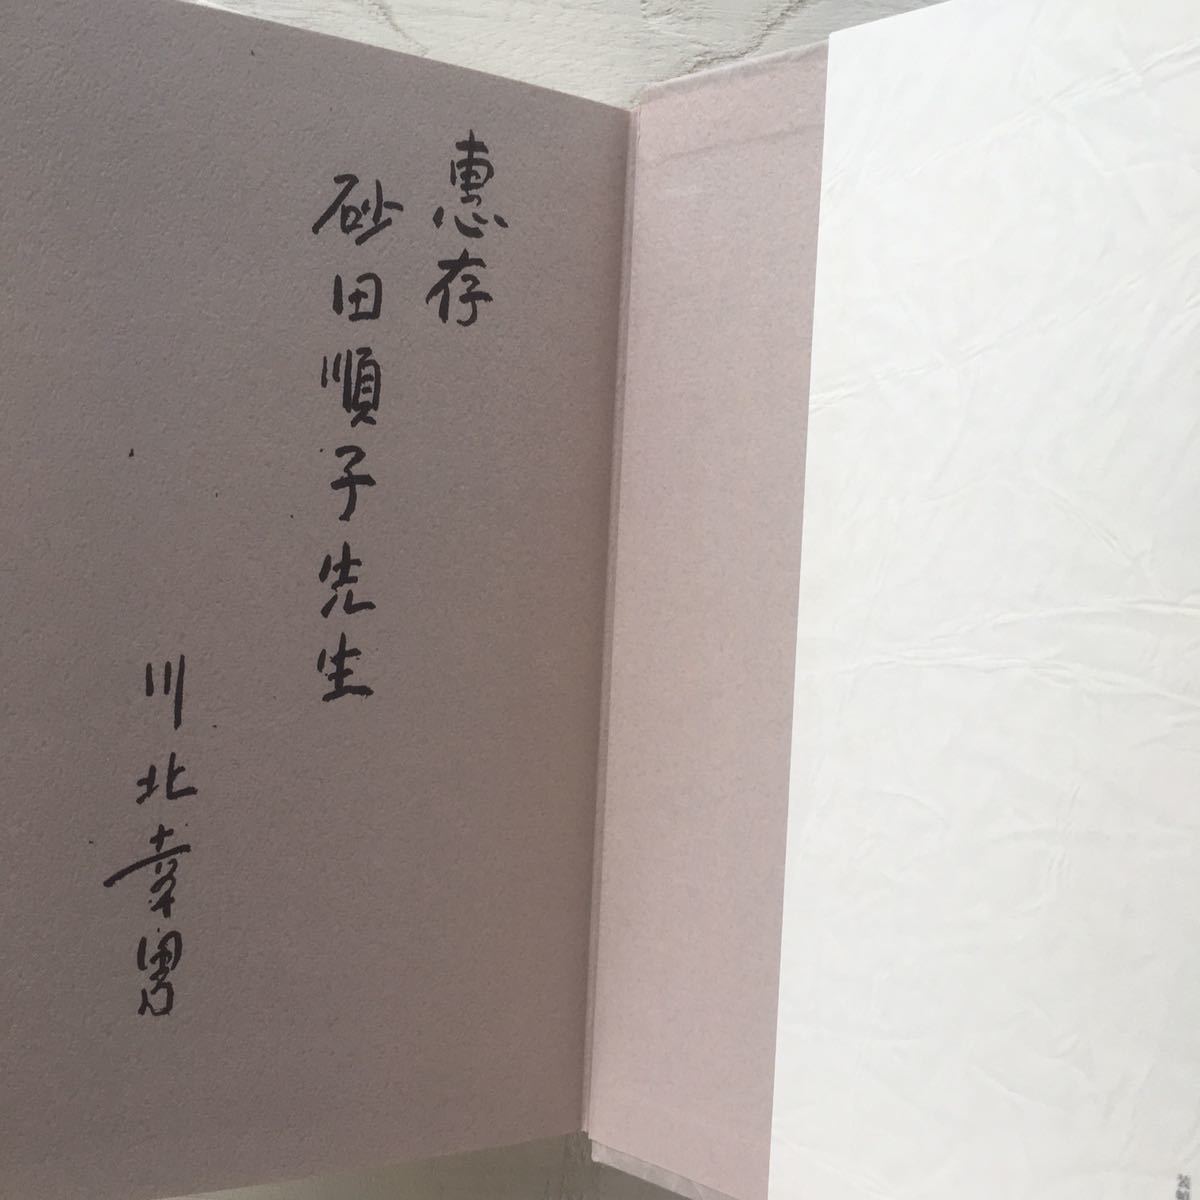 惠存
砂田順子先生
川北幸男